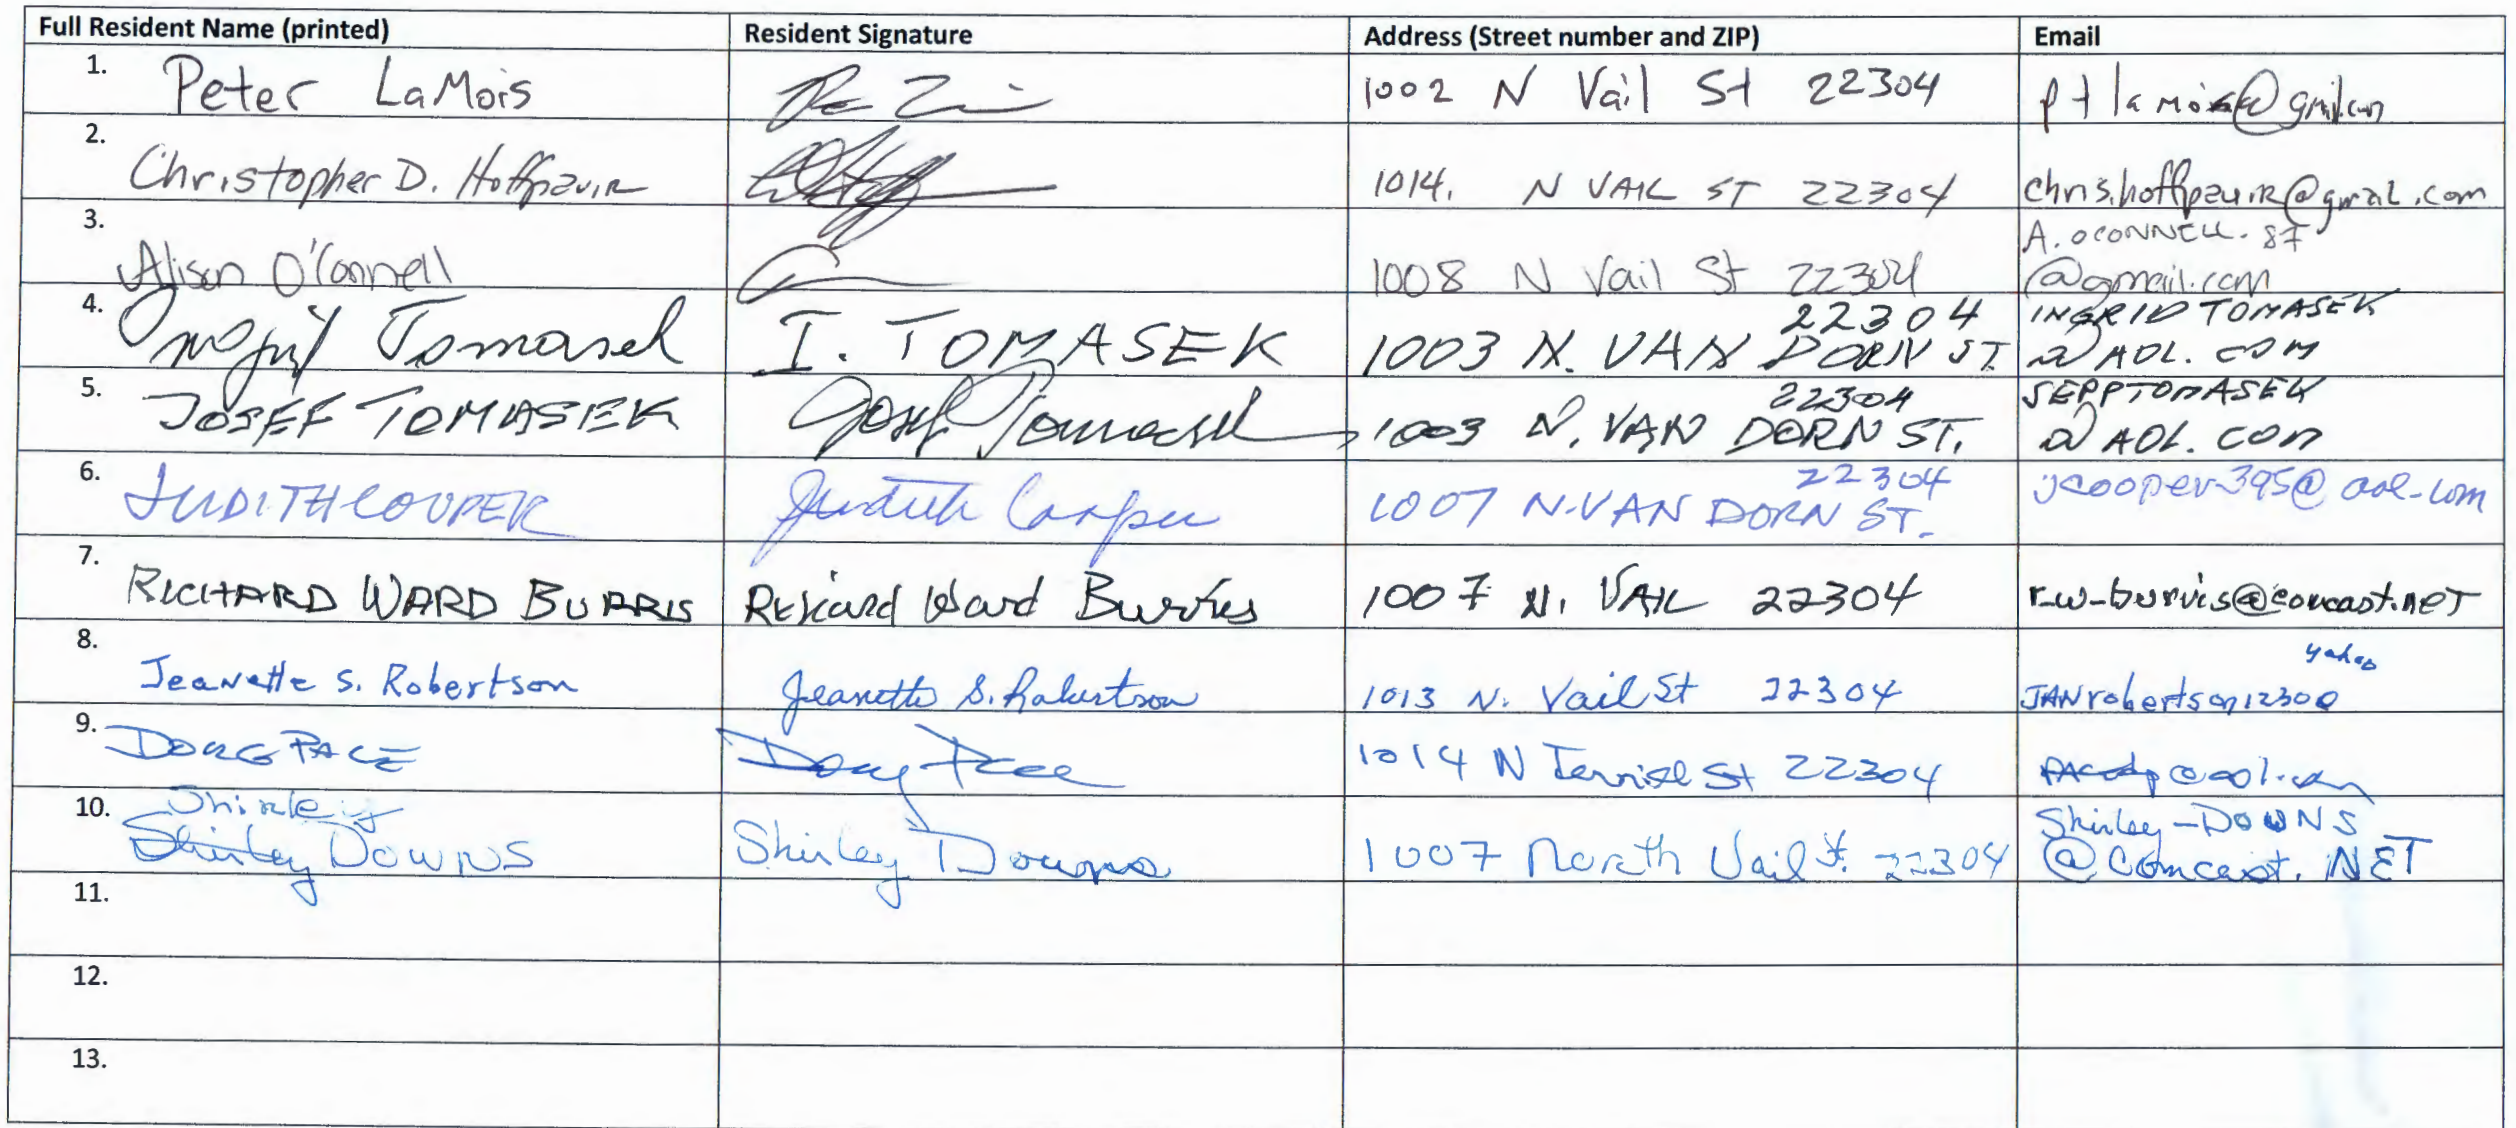 Full Resident Name (printed) Resident Signature Address (Street number and ZIP) Email
1. Peter LaMois 1002 N Vail St 22304 ptlamois@gmail.com
2. Christopher D. Hoffpauir 1014. N VAIL ST 22304 chris.hoffpauir@gmail.com
3. Alison O'Connell 1008 N Vail St 22304 A.OCONNELL.87
@gmail.com
4. Tomasek I. TOMASEK 1003 N. VAN DORN ST. 22304 INGRID TOMASEK
@ AOL. COM
5. JOSEF TOMASEK Josef Tomasek 1003 N. VAN DORN ST. 22304 SEPPTOMASEK
@ AOL. COM
6. JUDITH COOPER Judith Cooper 1007 N. VAN DORN ST. 22304 jcooper395@aol.com
7. RICHARD WARD BURRIS Richard Ward Burris 1007 N. VAIL 22304 r-w-burris@comcast.NET
8. Jeanette S. Robertson Jeanette S. Robertson 1013 N. Vail St 22304 JANrobertson1230@ yahoo
9. DOUG PACE Doug Pace 1014 N Terrill St 22304 @aol.com
10. Shirley
Shirley DOWNS Shirley Downs 1007 North Vail St. 22304 Shirley-DOWNS
@Comcast.NET
11.
12.
13.